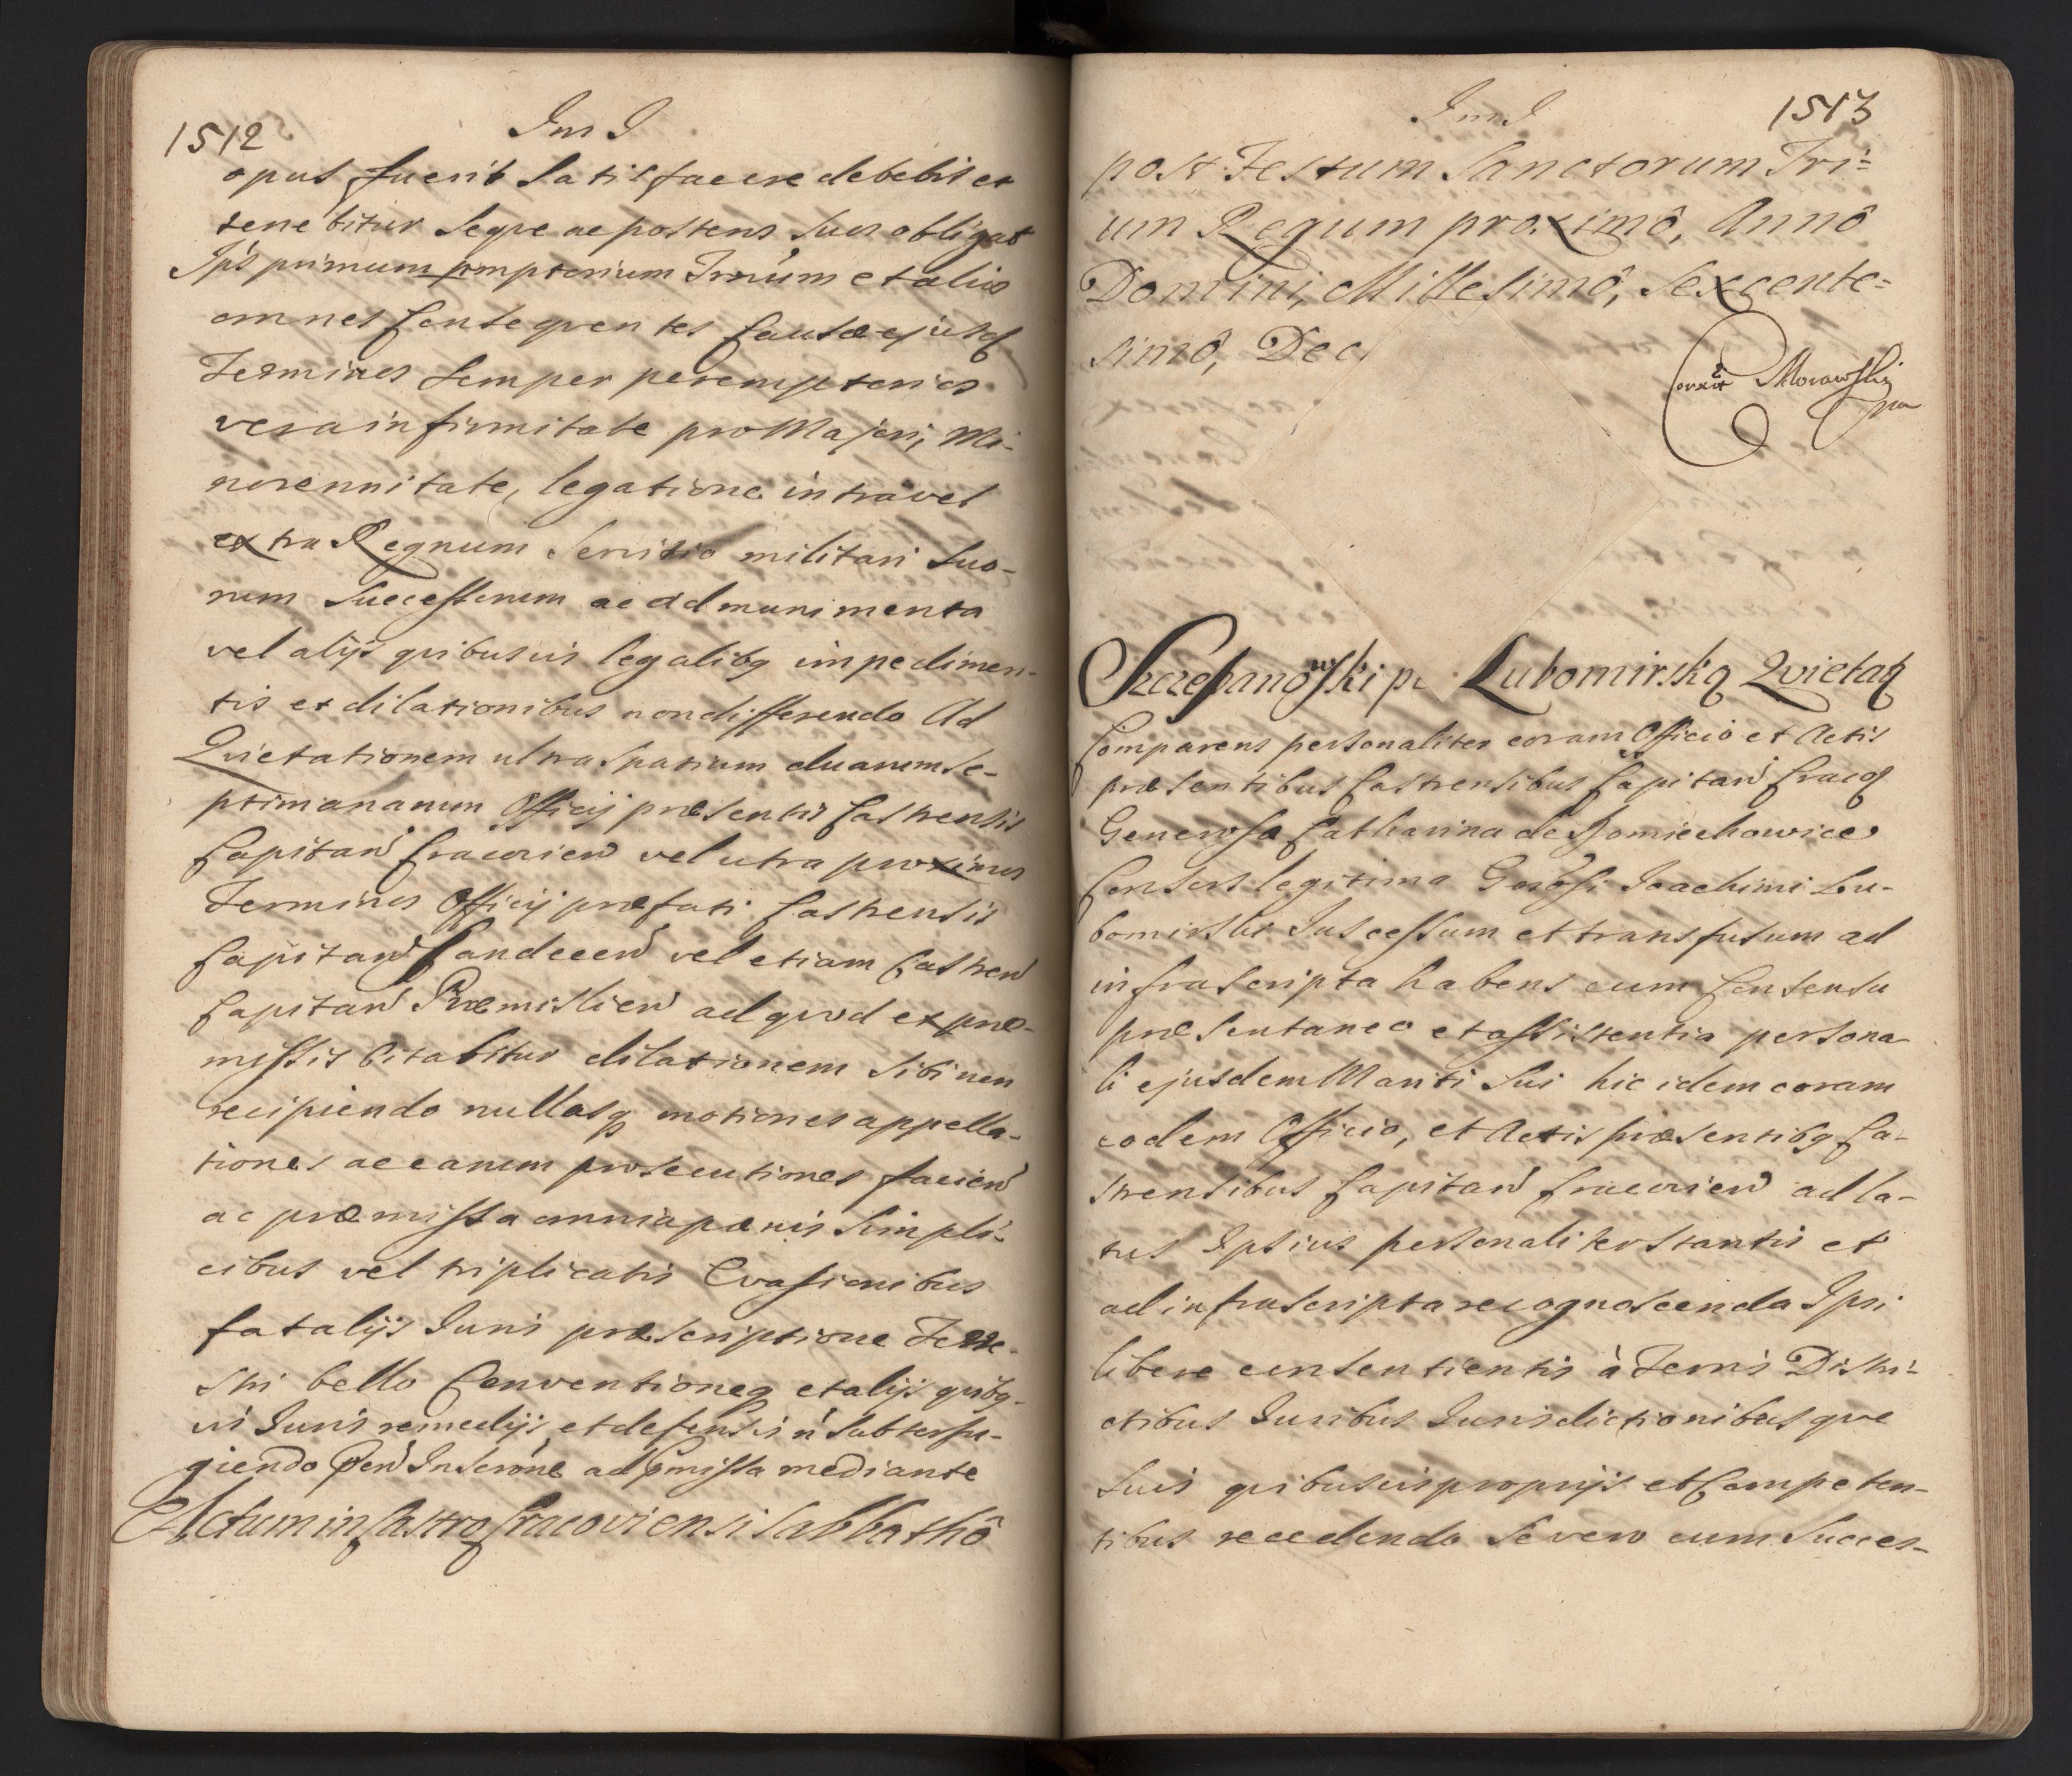 1512
Im I
opus fuerit satisfacere debebit et
tenebitur seque ac posteros suos obligat
Ips primum pmptorium Trnum et alios
omnes consequentes causæ ejusq
Terminos semper peremptorios
vera infirmitate pro Majori, Mi-
norennitate, legatione intra vel
extra Regnum Servitio militari suo-
rum successorum ac ad munimenta
vel alijs quibusvis legalibq impedimen-
tis et dilationibus non differendo Ad
Quietationem ultra spatium duarum se-
ptimanarum Officij præsentis Castrensis
Capitan Cracovien vel utra proximos
Terminos Officij præfati Castrensis
Capitan Sandecen vel etiam Castren
Capitan Præmislien ad quod ex præ-
missis Citabitur dilationem sibi non
recipiendo nullasq motiones appella-
tiones ac earum prosecutiones facien
ac præmissa omnia pænis simpli-
cibus vel triplicatis Evasionibus
fatalijs Juris præscriptione Terre-
stri bello Conventioneq et alijs quibq-
vis Juris remedijs et defensis n subterfu-
giendo Pen Inscrōne ad pmissa mediante
Actum in Castro Cracoviensi Sabbathô
Im I
1513
post Festum Sanctorum Tri=
um Regum proximô, Annô
Domini, Millesimô, Sexcente=
simô, Dec
Correxit Morawski
mp
Szczepanowski p Lubomirskq Quietatq
Comparens personaliter coram Officio et Actis
præsentibus Castrensibus Capitan Cracq
Generosa Catharina de Domiechowice
Consors legitima Gnrosi Joachimi Lu-
bomirski Successum et transfusum ad
infrascripta habens cum Consensu
præsentaneo et assistentia persona
li ejusdem Mariti sui hic idem coram
eodem Officio, et Actis præsentibq Ca-
strensibus Capitan Cracovien ad la-
tus Ipsius personaliter stantis et
ad infrascripta recognoscenda Ipsi
libere consentientis à Terris Distri-
ctibus Juribus Jurisdictionibusque
suis quibusvis proprijs et Competen-
tibus recedendo se vero cum Succes-